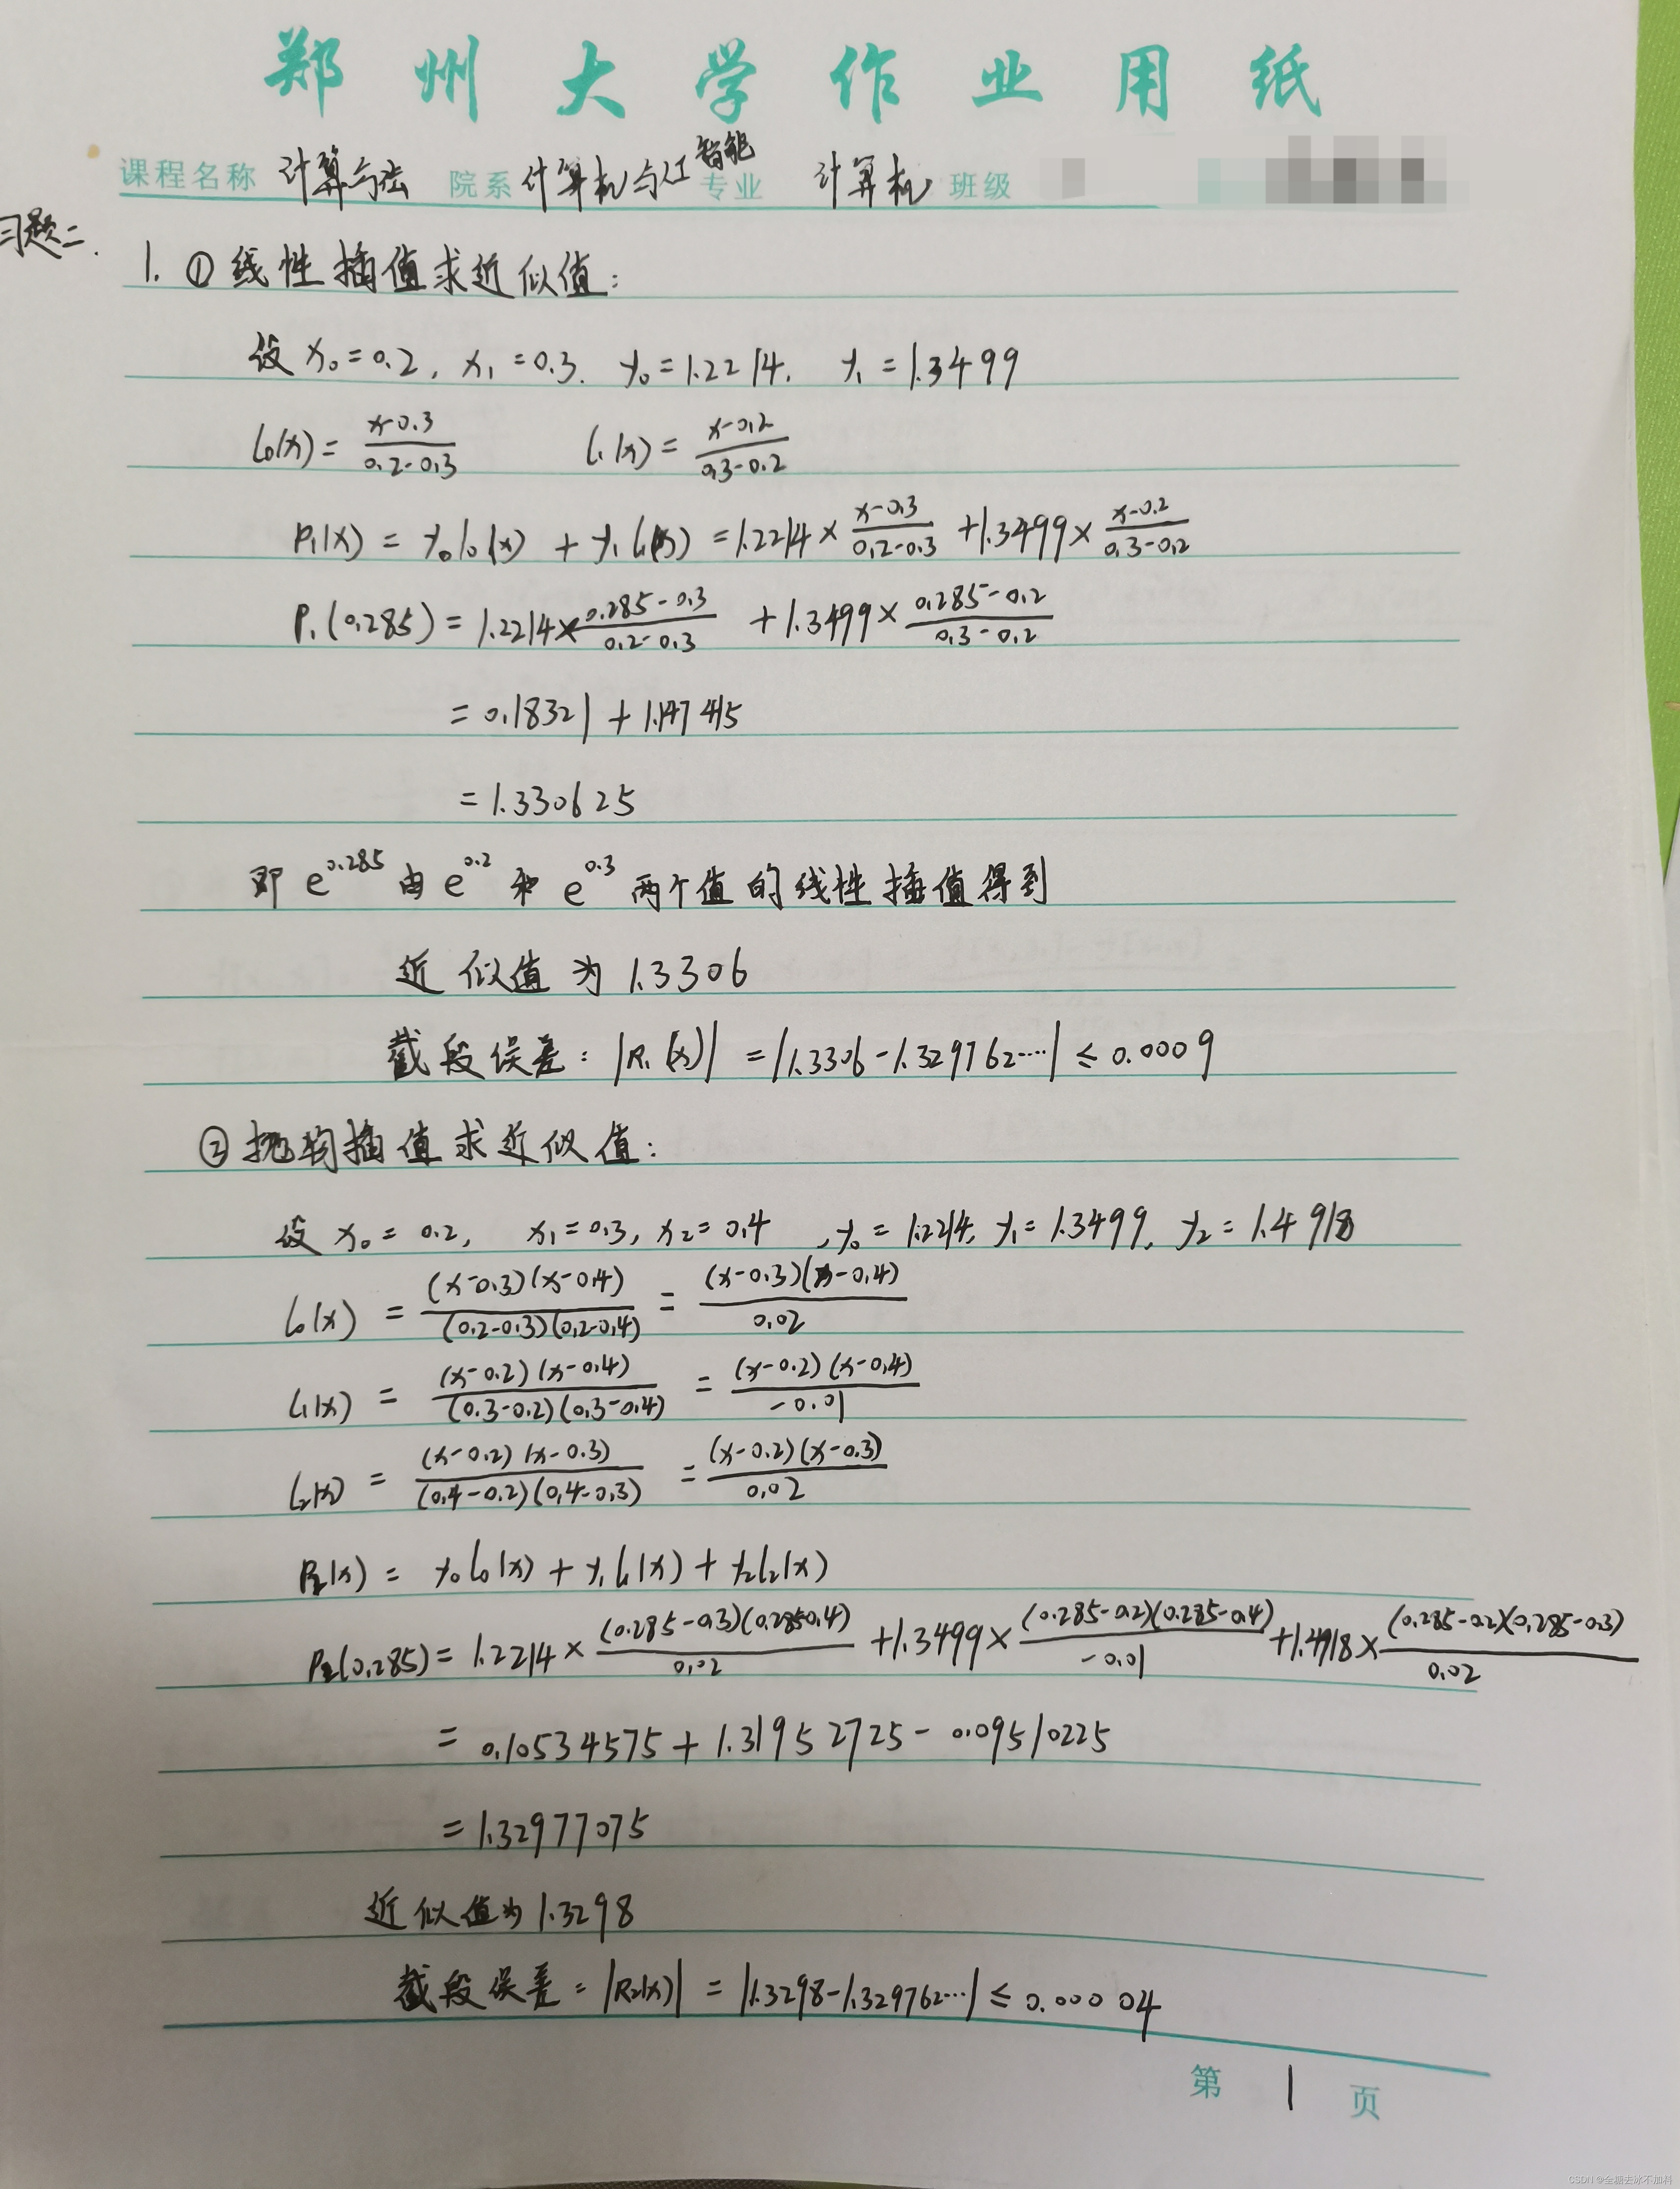 郑州大学作业用纸
课程名称 计算方法 院系 计算机与人工智能 专业 计算机 班级
习题二.
1. ① 线性插值求近似值：
设 x₀=0.2, x₁=0.3. y₀=1.2214. y₁=1.3499
l₀(x)= (x-0.3)/(0.2-0.3) l₁(x)= (x-0.2)/(0.3-0.2)
P₁(x) = y₀l₀(x) + y₁l₁(x) = 1.2214× (x-0.3)/(0.2-0.3) +1.3499× (x-0.2)/(0.3-0.2)
P₁(0.285) = 1.2214× (0.285-0.3)/(0.2-0.3) +1.3499× (0.285-0.2)/(0.3-0.2)
= 0.18321 + 1.147415
= 1.330625
即 e^0.285 由 e^0.2 和 e^0.3 两个值的线性插值得到
近似值为 1.3306
截段误差：|R₁(x)| = |1.3306-1.329762····| ≤ 0.0009
② 抛物插值求近似值：
设 x₀= 0.2, x₁=0.3, x₂=0.4 , y₀= 1.2214, y₁=1.3499, y₂=1.4918
l₀(x) = (x-0.3)(x-0.4)/(0.2-0.3)(0.2-0.4) = (x-0.3)(x-0.4)/0.02
l₁(x) = (x-0.2)(x-0.4)/(0.3-0.2)(0.3-0.4) = (x-0.2)(x-0.4)/-0.01
l₂(x) = (x-0.2)(x-0.3)/(0.4-0.2)(0.4-0.3) = (x-0.2)(x-0.3)/0.02
P₂(x) = y₀l₀(x) + y₁l₁(x) + y₂l₂(x)
P₂(0.285) = 1.2214× (0.285-0.3)(0.285-0.4)/0.02 +1.3499× (0.285-0.2)(0.285-0.4)/-0.01 +1.4918× (0.285-0.2)(0.285-0.3)/0.02
= 0.10534575 + 1.31952725 - 0.09510225
= 1.32977075
近似值为 1.3298
截段误差：|R₂(x)| = |1.3298-1.329762···| ≤ 0.00004
第 1 页
CSDN @全糖去冰不加料